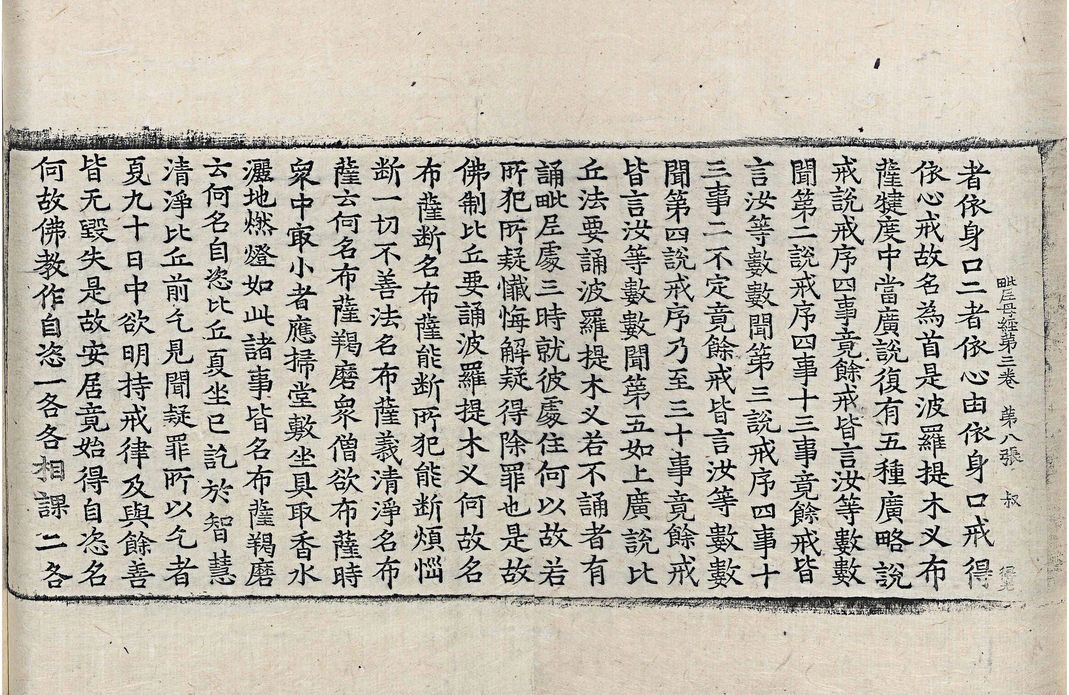 毗尼母經第三卷　第八張　叔
者依身口二者依心由依身口戒得
依心戒故名為首是波羅提木义布
薩犍度中當廣說復有五種廣略說
戒說戒序四事竟餘戒皆言汝等數數
聞第二說戒序四事十三事竟餘戒皆
言汝等數數聞第三說戒序四事十
三事二不定竟餘戒皆言汝等數數
聞第四說戒序乃至三十事竟餘戒
皆言汝等數數聞第五如上廣說比
丘法要誦波羅提木义若不誦者有
誦毗尼處三時就彼處住何以故若
所犯所疑懺悔解疑得除罪也是故
佛制比丘要誦波羅提木义何故名
布薩断名布薩能断所犯能断煩惱
断一切不善法名布薩義清淨名布
薩云何名布薩羯磨衆僧欲布薩時
衆中㝡小者應掃堂敷坐具取香水
灑地燃燈如此諸事皆名布薩羯磨
云何名自恣比丘夏坐已訖於智慧
清淨比丘前乞見聞疑罪所以乞者
夏九十日中欲明持戒律及與餘善
皆无毀失是故安居竟始得自恣名
何故佛教作自恣一各各相課二各